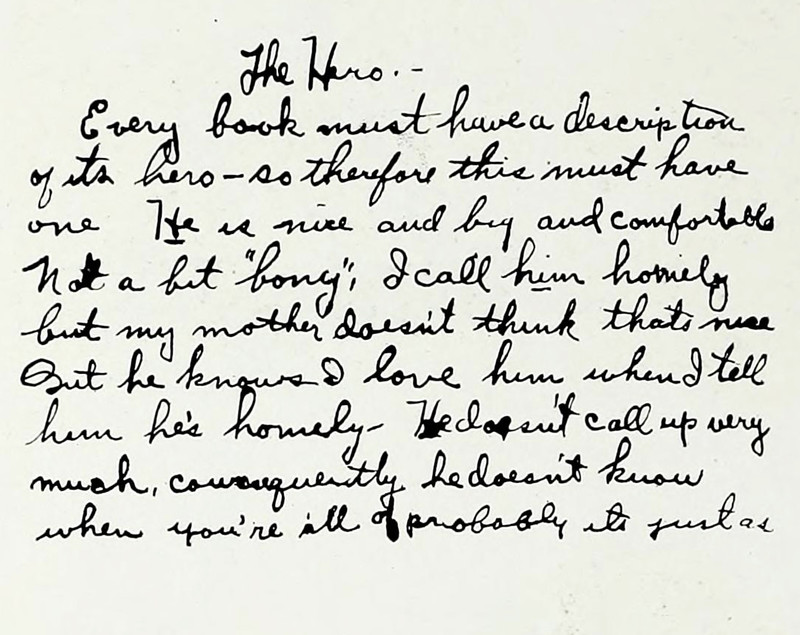 The Hero.-
Every book must have a description
of its hero - so therefore this must have
one He is nice and big and comfortable
Not a bit "bony"; I call him homely
but my mother doesn't think thats nice
But he knows I love him when I tell
him he's homely - He doesn't call up very
much, consequently he doesn't know
when you're ill & probably its just as